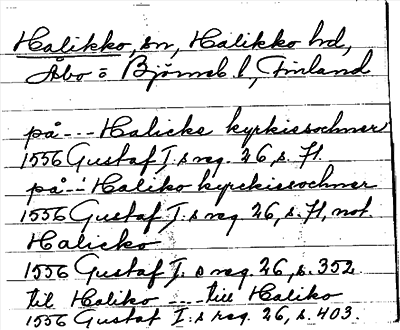 Halikko, sn, Halikko hd,
Åbo o Björneb l, Finland
på --- Halicke kyrkissochner
1556 Gustaf I:s reg. 26, s. 71.
på --- Haliko kyrckissochner
1556 Gustaf I:s reg. 26, s. 71, not
Halicko
1556 Gustaf I:s reg. 26, s. 352
til Haliko --- till Haliko
1556 Gustaf I:s reg. 26, s. 403.